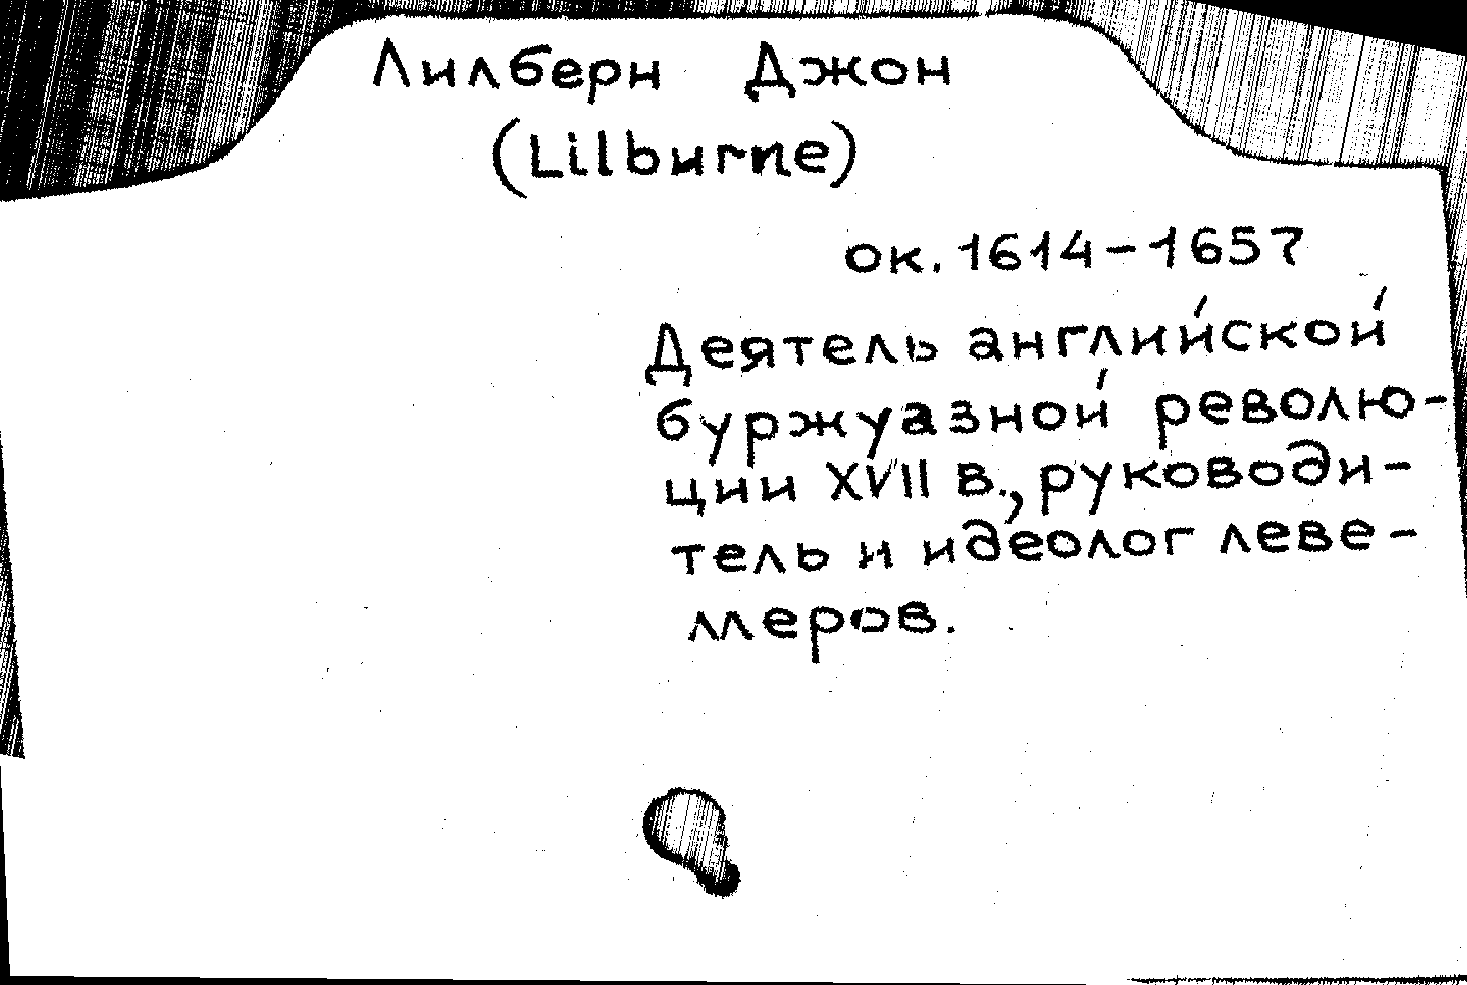 Лилберн Джон
(Lilburne)
ок. 1614-1657
Деятель английской
буржуазной револю-
ции XVII в., руководи-
тель и идеолог леве-
меров.